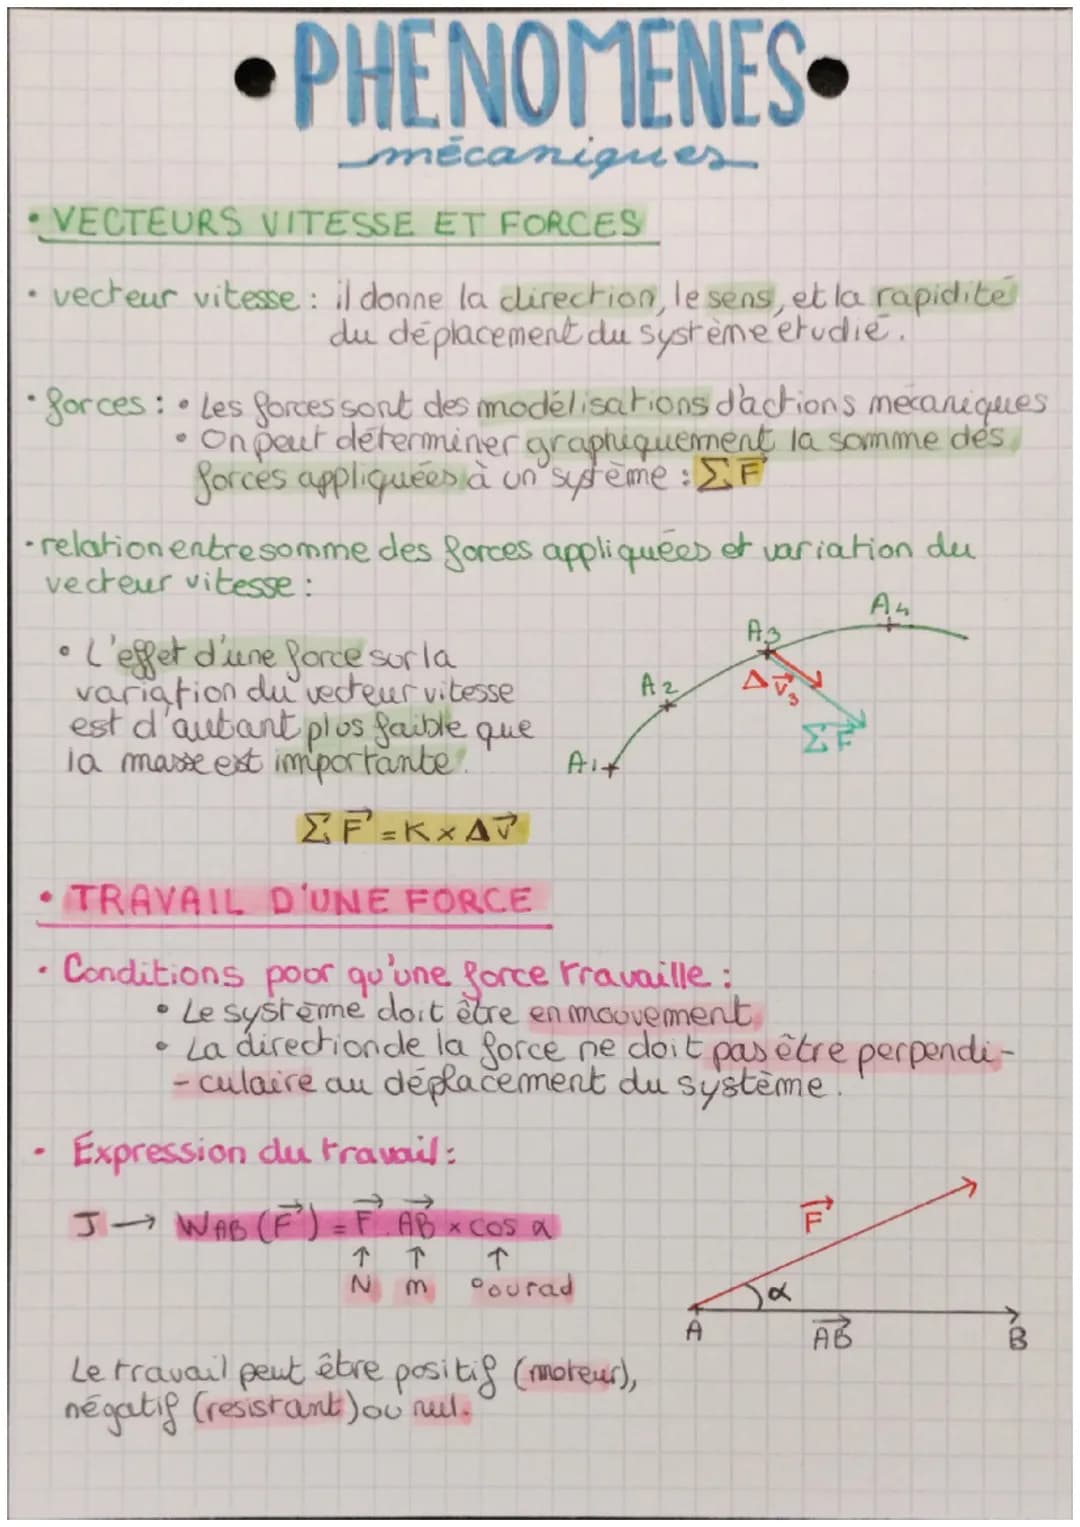 • PHENOMENES •
mécaniques
• VECTEURS VITESSE ET FORCES
• vecteur vitesse : il donne la direction, le sens, et la rapidité
du déplacement du système étudié.
• forces : • Les forces sont des modélisations d'actions mécaniques
• On peut déterminer graphiquement la somme des
forces appliquées à un système : Σ F⃗
• relation entre somme des forces appliquées et variation du
vecteur vitesse :
• L'effet d'une force sur la
variation du vecteur vitesse
est d'autant plus faible que
la masse est importante.
A1
A2
A3
A4
Δv⃗₃
ΣF⃗
Σ F⃗ = K × Δv⃗
• TRAVAIL D'UNE FORCE
• Conditions pour qu'une force travaille :
• Le système doit être en mouvement.
• La direction de la force ne doit pas être perpendi-
-culaire au déplacement du système.
• Expression du travail :
J → WAB (F⃗) = F⃗ . AB⃗ × cos α
↑ ↑ ↑
N m ° ou rad
F⃗
α
A AB⃗ B
Le travail peut être positif (moteur),
négatif (resistant) ou nul.